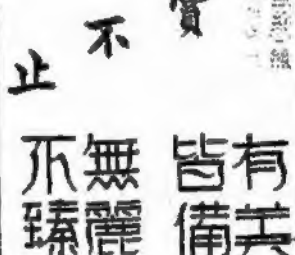 賞
不
止
有美
皆備
無麗
不臻